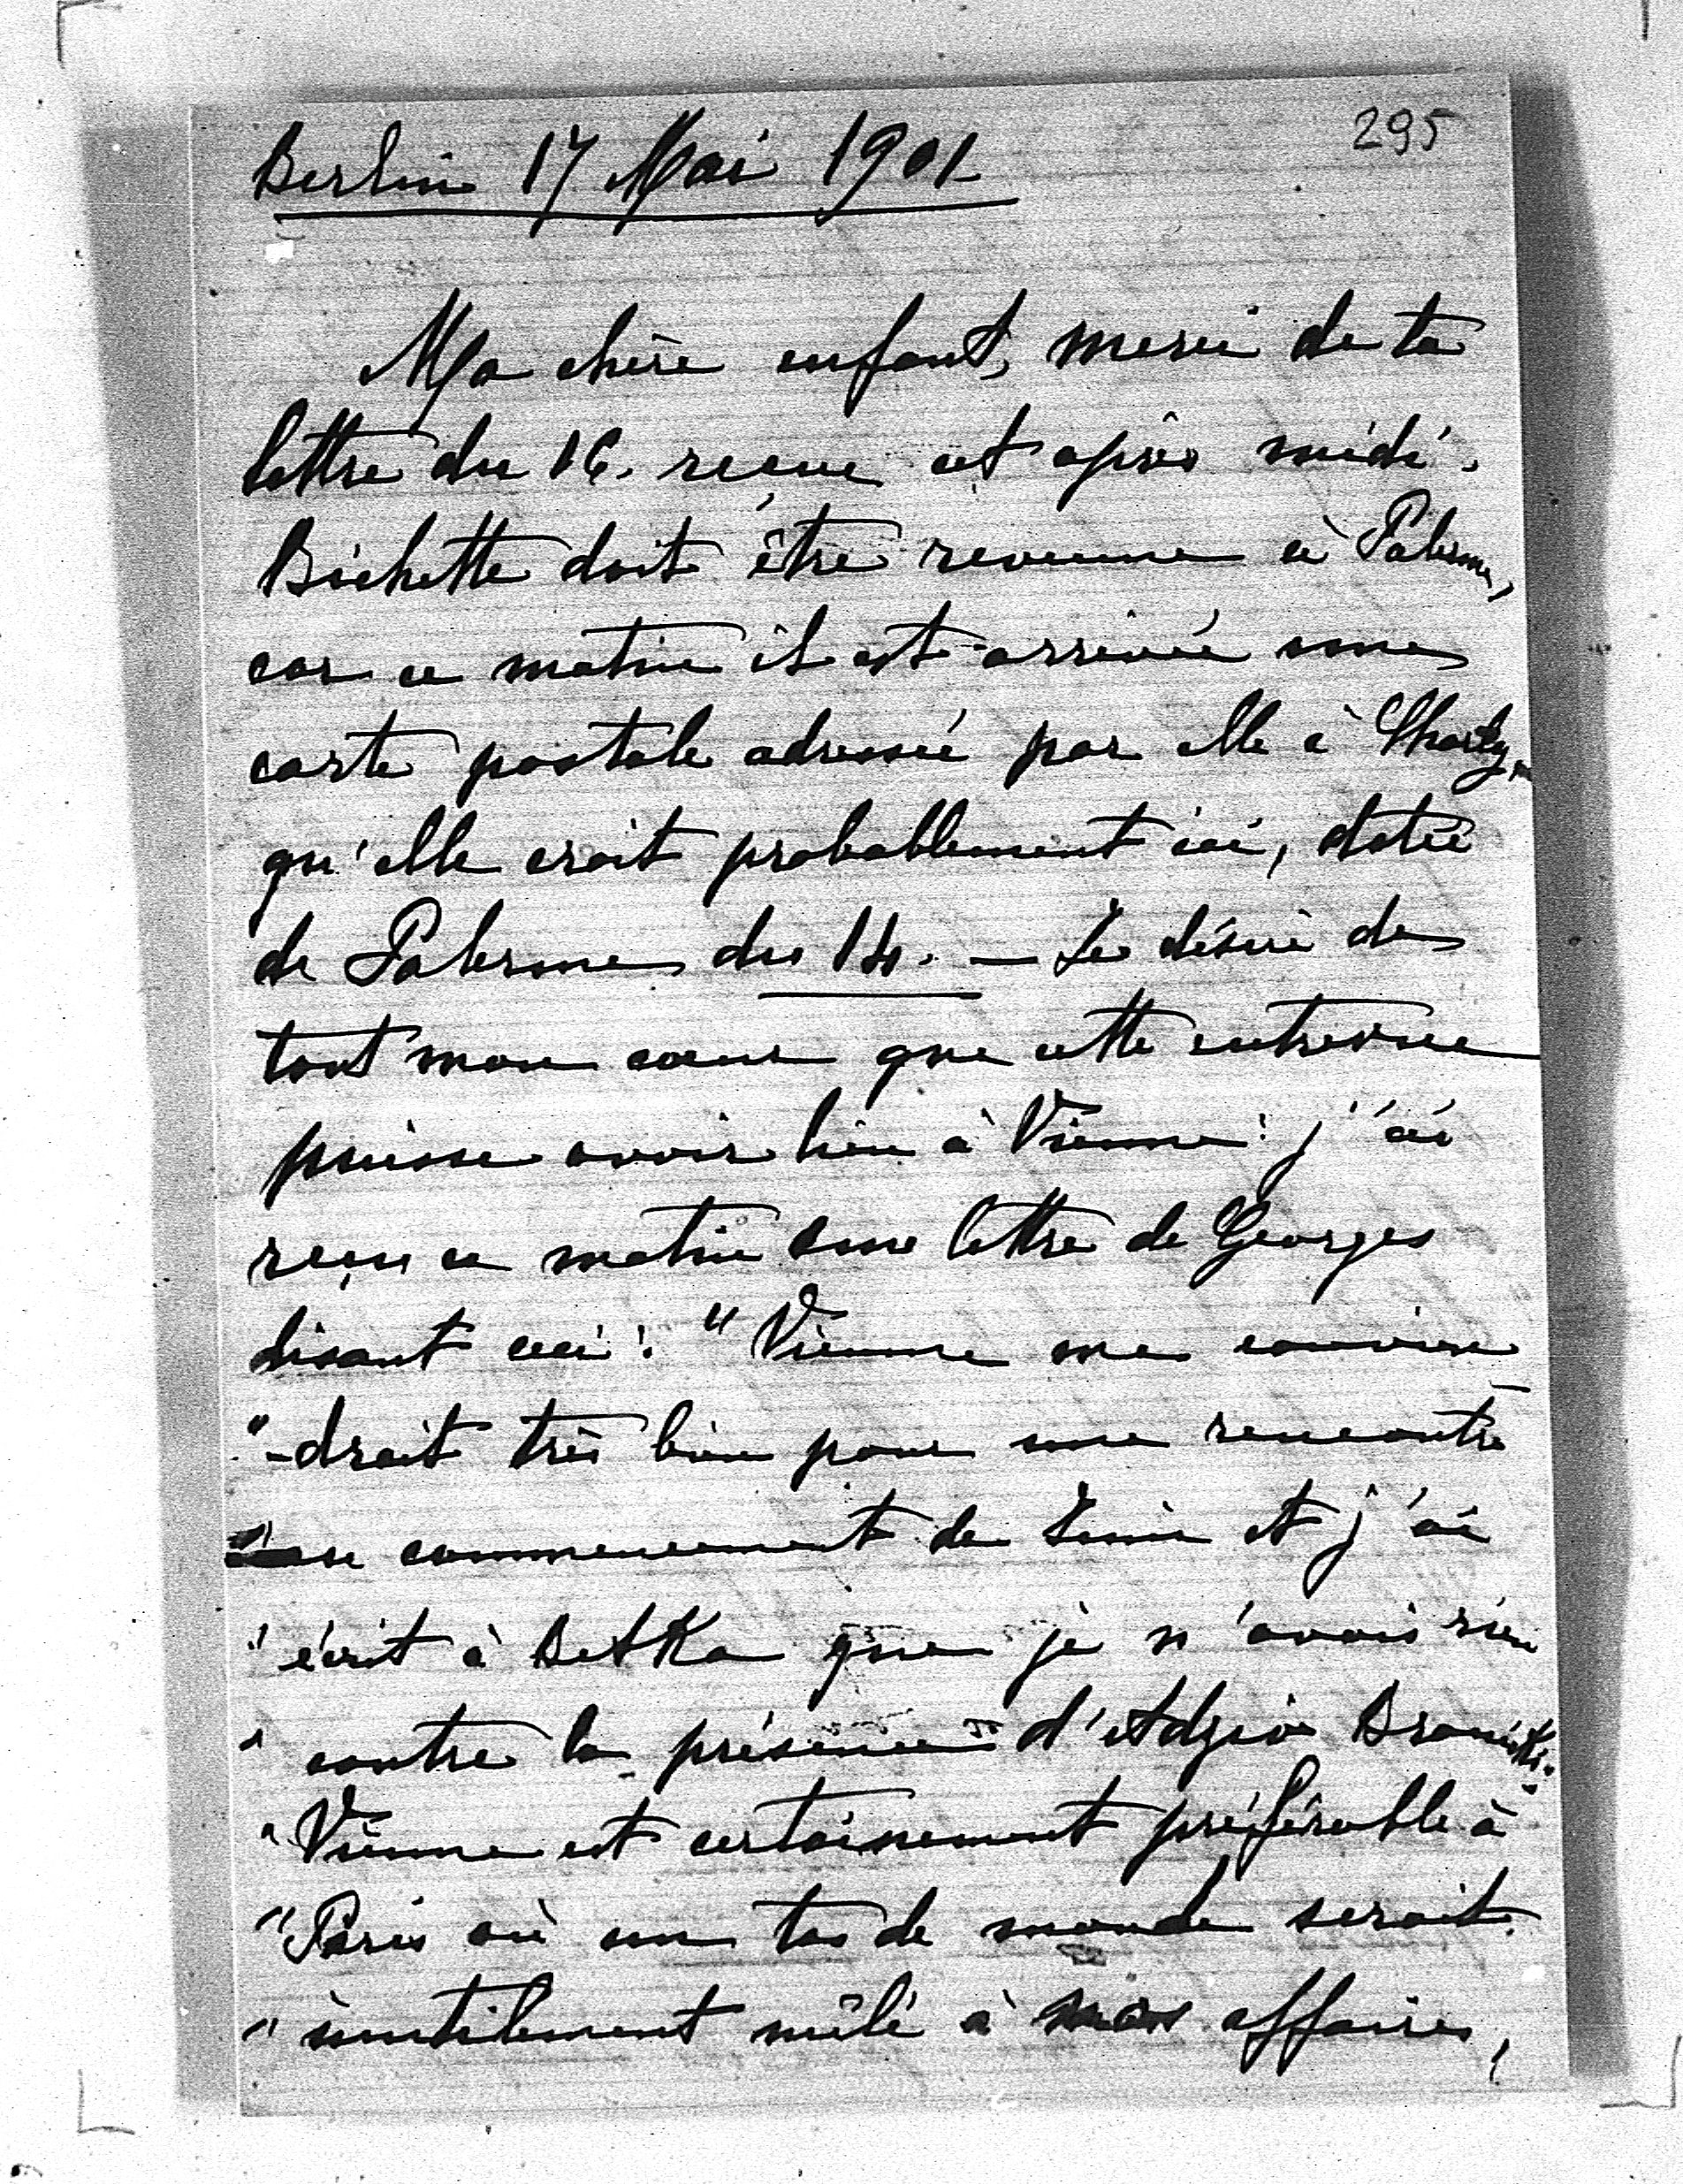 295
Berlin 17 Mai 1901
Ma chère enfant, merci de ta
lettre du 16. reçue cet après midi.
Bichette doit être revenue à Palerme,
car ce matin il est arrivée une
carte postale adressée par elle à Charly,
qu'elle croit probablement ici, datée
de Palerme du 14. — Je désire de
tout mon cœur que cette entrevue
puisse avoir lieu à Vienne: j'ai
reçu ce matin une lettre de Georges
disant ceci: "Vienne me convien
"-drait très bien pour une rencontre
"au commencement de Juin et j'ai
"écrit à Betka que je n'avais rien
"contre la présence d'Adzio Branicki.
"Vienne est certainement préférable à
"Paris où un tas de monde serait
"inutilement mêlé à mes affaires,